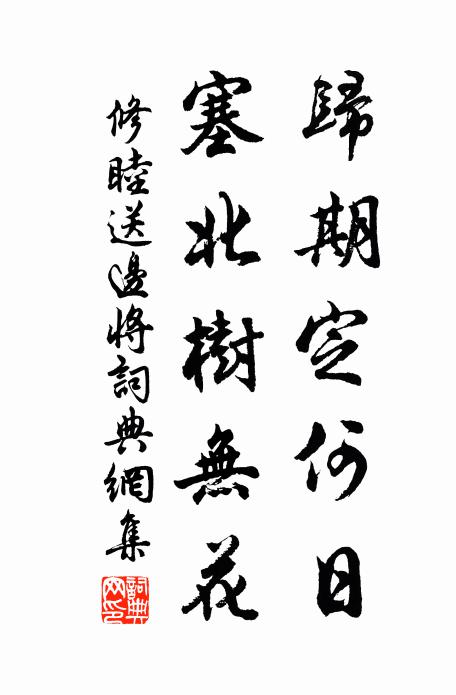 歸期定何日
塞北樹無花
修睦送邊將詞典網集
詞典網印